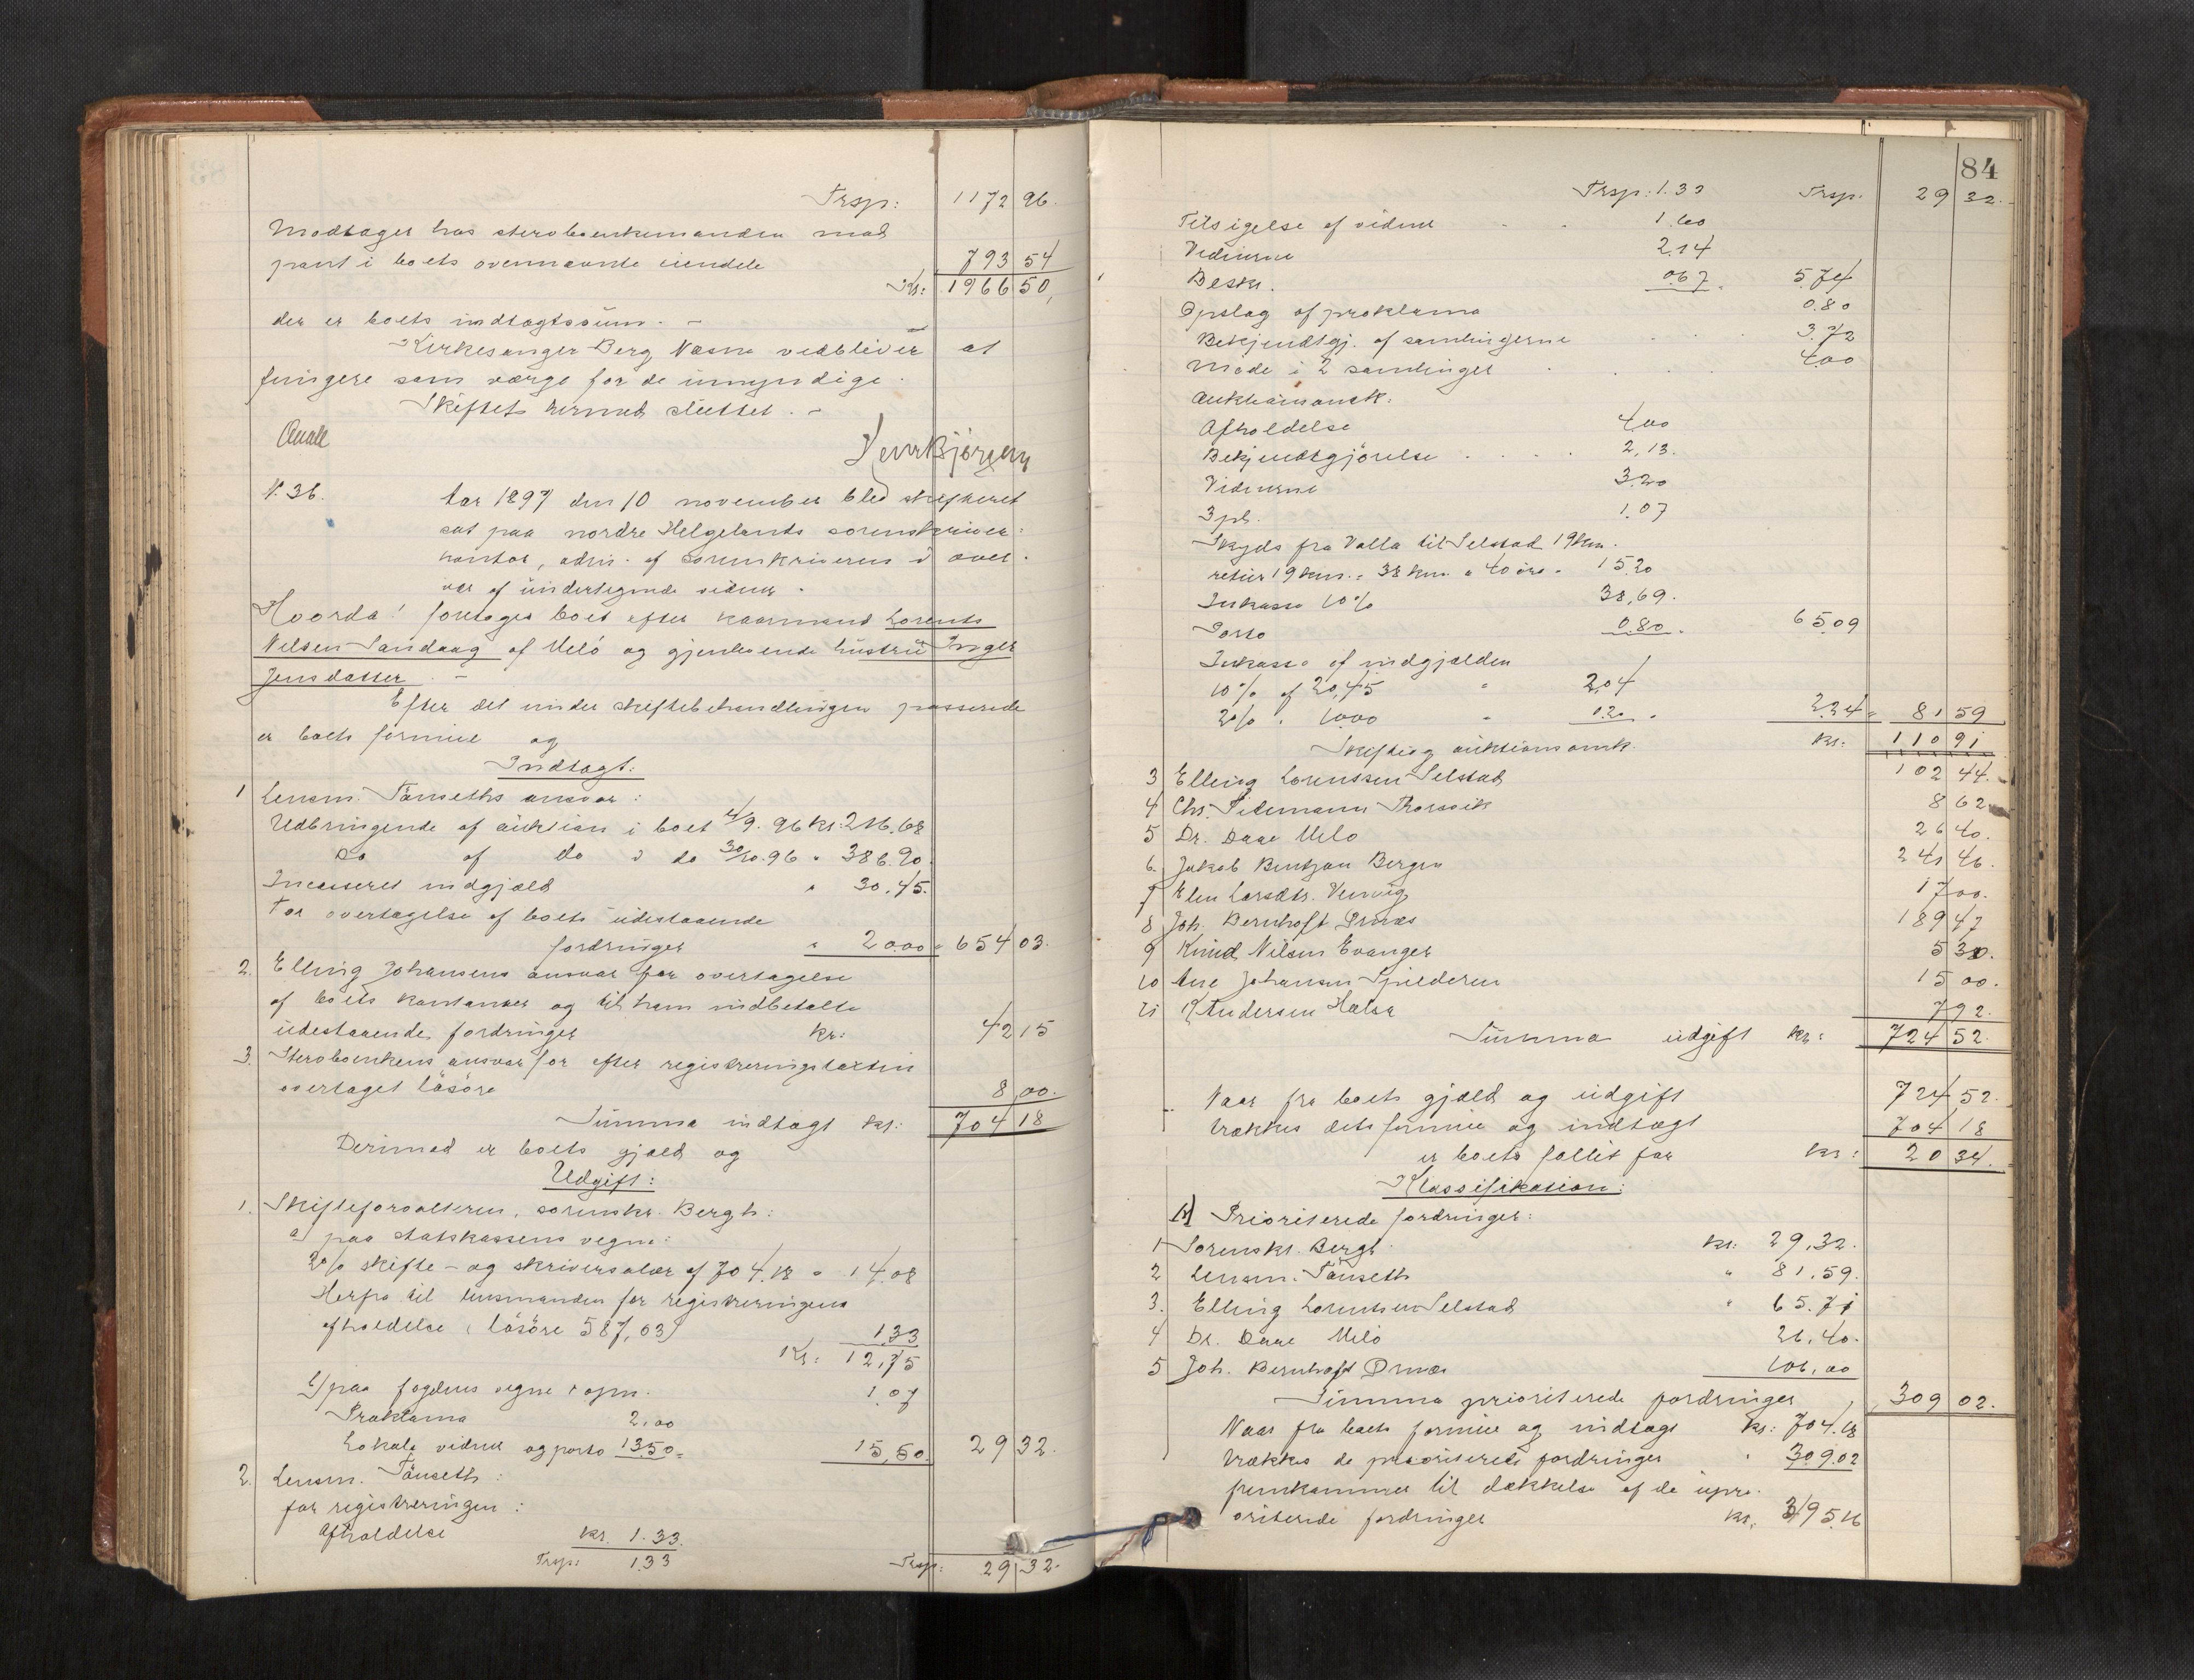 Trsp: 1172 96.
Modtages hos sterboenkemanden mod
pant i boets ovennævnte eiendele 793 54
Kr: 1966 50,
der er boets indtagtssum. –
Kirkesanger Berg Næsna vedbliver at
fungere som værge for de umyndige.
Skiftet hermed sluttet. –
N. 36. Aar 1897 den 10 november blev skifteret
sat paa nordre Helgelands sorenskriver:
kontor, adm. af sorenskriveren i over:
vær af undertegnede vidner.
Hvorda! foretoges boet efter kaarmand Lorents
Nilsen Sandaag af Melö og gjenlevende hustru Inger
Jensdatter. –
Efter det under skiftebehandlingen passerede
er boets formue og
Indtægt:
1 Lensm. Tönseths ansvar:
Udbringende af auktion i boet 4/9. 96 kr: 216.68
Do af do i do 30/10. 96 " 386.90.
Incasseret indgjæld " 30.45.
For overtagelse af boets udestaaende
fordringer " 20.00 = 654 03.
2. Elling Johansens ansvar for overtagelse
af boets kontanter og til ham indbetalte
udestaaende fordringer kr: 42 15
3. Sterboenkens ansvar for efter registreringstaxten
overtaget lösöre 8 00.
Summa indtægt kr: 704 18
Derimod er boets gjæld og
Udgift:
1. Skifteforvalteren, sorenskr. Bergh:
a) paa statskassens vegne:
2% skifte- og skriversalær af 704.18 = 14.08
Herfra til lensmanden for registreringens
afholdelse (lösöre 587,03) 1.33
Kr: 12,75
b) paa fogdens vegne i opn. 1.07
Proklama 2.00
Lokale vidner og porto 13.50 = 15,50. 29 32.
2. Lensm. Tönseth:
for registreringen:
Afholdelse kr. 1.33.
Trsp: 1.33 Trsp: 29 32.
84
Trsp: 1.33 Trsp. 29 32.
Tilsigelse af vidner 1.60
Vidnerne 2.14
Beskr. 0.67. 5.74
Opslag af proklama 0.80
Bekjendtgj. af samlingerne 3.72
Møde i 2 samlinger 4.00
Auktionsomk:
Afholdelse 4.00
Bekjendtgjörelse 2,13.
Vidnerne 3.20
3 pl. 1.07
Skyds fra Valla til Selstad 19 km.
retur 19 km. = 38 km. a 40 öre = 15.20
Inkasso 10% 38,69.
Porto 0.80. 65.09
Inkasso af indgjælden
10% af 20,45 " 2.04
2% " 10.00 " 0.20. 2.24 = 81 59
Skifte og auktionsomk. kr: 110 91
3 Elling Lorentsen Selstad 102 44.
4 Chs. Tidemann Thorsvik 8 62
5 Dr. Daae Melö 26 40.
6. Jakob Bentzon Bergen 241 46.
7 Elen Larsdtr. Vennig 17 00.
8 Joh. Bernhoft Ørnæs 189 47
9 Knud Nilsen Evanger 5 30.
10 Ane Johansen Spilderen 15 00.
11 P. Andersen Halsa 7 92.
Summa udgift kr: 724 52.
Naar fra boets gjæld og udgift 724 52.
trækkes dets formue og indtægt 704 18
er boets fallit for kr: 20 34.
Klassifikation:
A) Prioriterede fordringer:
1 Sorenskr. Bergh kr: 29,32.
2 Lensm. Tönseth " 81,59.
3. Elling Lorentsen Selstad " 65.71
4 Dr. Daae Melö 26,40.
5 Joh. Bernhoft Ørnæs 106,00
Summa prioriterede fordringer, 309 02.
Naar fra boets formue og indtægt kr: 704.18
trækkes de prioriterede fordringer " 309.02
fremkommer til dækkelse af de upri-
oriterede fordringer kr. 395.16